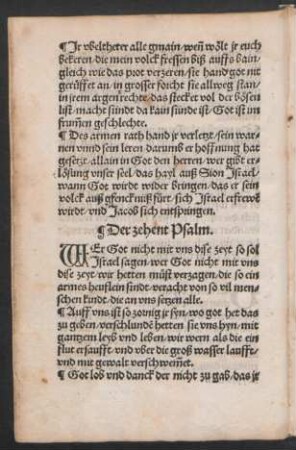 ¶Ir vbeltheter alle gmain/weñ wölt jr euch
bekeren/die mein volck fressen biß auffs bain/
gleich wie das prot verzeren/sie hand got nit
gerüffet an/in grosser forcht sie allweg stan/
in jrem argen rechte/das stecket vol der bösen
list/macht sünde da kain sünde ist/Got ist im
frum̃en geschlechte.
¶Des armen rath hand jr verletzt/sein war-
nen vnnd sein leren/darumb er hoffnung hat
gesetzt/allain in Got den herren/wer gibt er-
lösung vnser seel/das hayl auß Sion Israel/
wann Got wirdt wider bringen/das er sein
volck auß gfencknuß fürt/sich Israel erfrewẽ
wirdt/vnd Jacob sich entspringen.
¶Der zehent Psalm.
WEr Got nicht mit vns dise zeyt so sol
Israel sagen/wer Got nicht mit vns
dise zeyt/wir hetten müst verzagen/die so ein
armes heuflein sind/veracht von so vil men-
schen kundt/die an vns setzen alle.
¶Auff vns ist so zornig jr syn/wo got het das
zu geben/verschlundẽ hetten sie vns hyn/mit
gantzem leyb vnd leben/wir wern als die ein
flut ersaufft/vnd vber die groß wasser laufft/
vnd mit gewalt verschwem̃et.
¶Got lob vnd danck der nicht zu gab/das jr